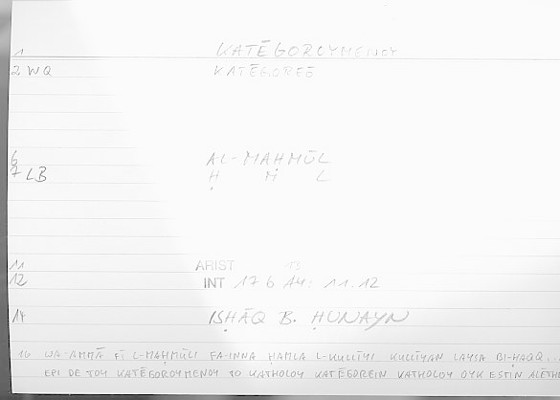 1 KATĒGOROYMENOY
2 WQ KATĒGOREĒ
6 AL-MAḤMŪL
7 LB Ḥ M L
11 ARIST
12 INT 17 b 14: 11.12
14 ISḤĀQ B. ḤUNAYN
16 WA-AMMĀ FĪ L-MAḤMŪLI FA-INNA ḤAMLA L-KULLĪYI KULLĪYAN LAYSA BI-ḤAQQ...
EPI DE TOY KATĒGOROYMENOY TO KATHOLOY KATĒGOREIN KATHOLOY OYK ESTIN ALĒTH